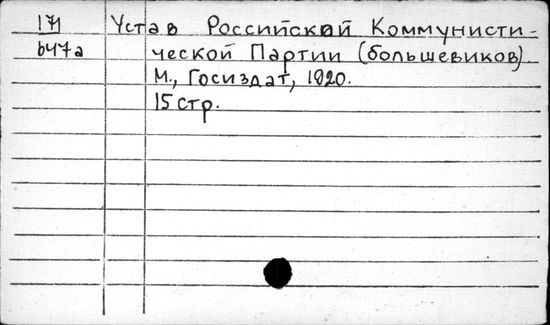 171 Устав Российской Коммунисти-
b47a ческой Партии (большевиков)
М., Госиздат, 1920.
15 стр.